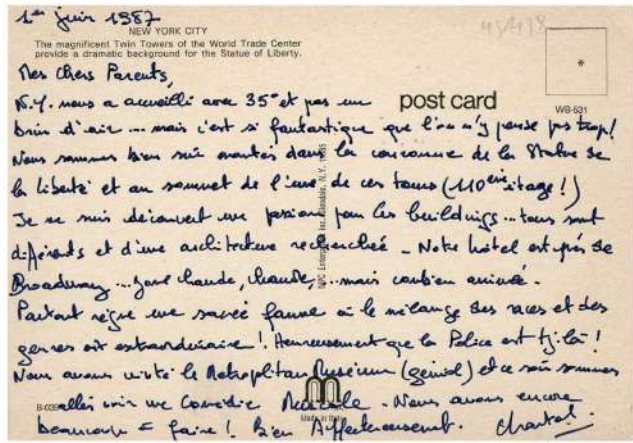 1er juin 1987
45/438
NEW YORK CITY
The magnificent Twin Towers of the World Trade Center
provide a dramatic background for the Statue of Liberty.
*
WB-531
post card
Mes Chers Parents,
N.Y. nous a accueilli avec 35° et pas un
brin d'air ... mais c'est si fantastique que l'on n'y pense pas trop!
Nous sommes bien sûr montés dans la couronne de la Statue de
la liberté et au sommet de l'une de ces tours (110ème étage!)
Je me suis découvert une passion pour les buildings... tous sont
différents et d'une architecture recherchée - Notre hôtel est près de
Broadway ... zone chaude, chaude, ... mais combien animée -
Partout règne une sacrée faune où le mélange des races et des
genres est extraordinaire!. Heureusement que la Police est tjs là!
Nous avons visité le Metropolitan Museum (génial) et ce soir sommes
allés voir une Comédie Musicale - Nous avons encore
beaucoup à faire! Bien Affectueusement. Chantal.
B-039
Made in Italy